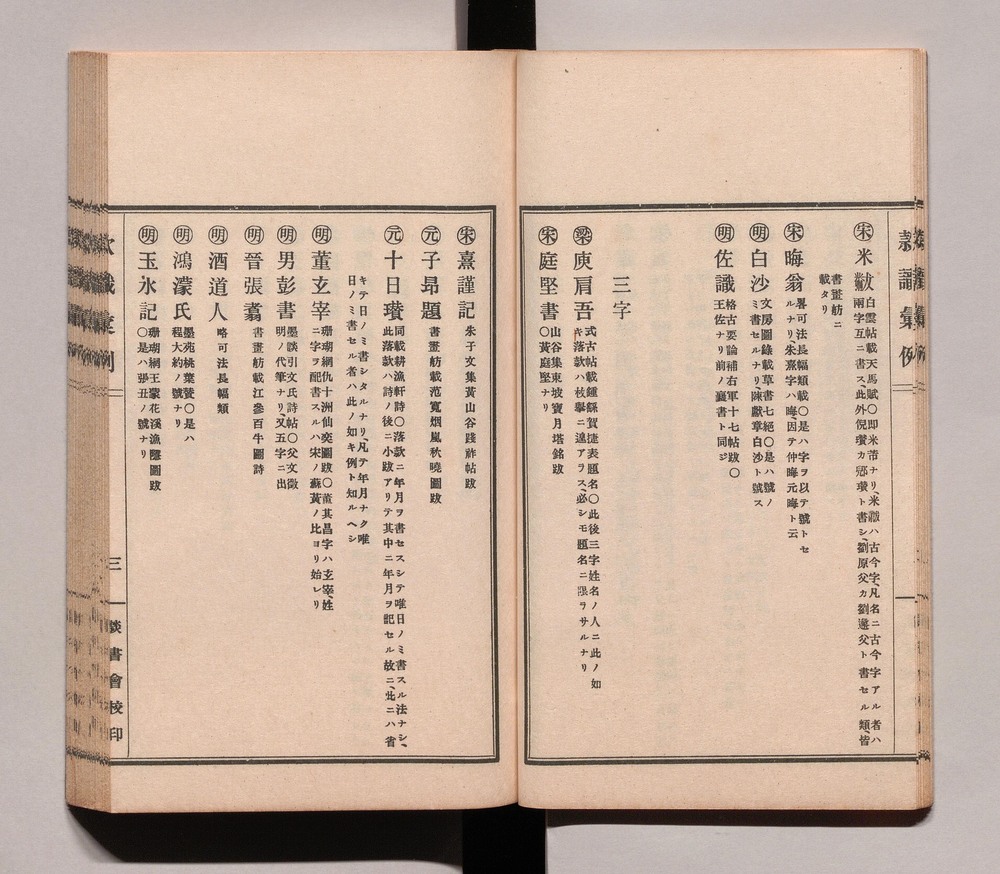 款識彙例
宋 米黻 白雲帖載天馬賦〇即米芾ナリ、米黻ハ古今字、凡名ニ古今字アル者ハ
兩字互ニ書ス、此外倪瓚カ
ト書シ、劉原父カ劉邍父ト書セル類、皆
書畫舫ニ
載タリ
宋 晦翁 畧可法長幅類載〇是ハ字ヲ以テ號トセ
ルナリ、朱熹字ハ晦、因テ仲晦元晦ト云
明 白沙 文房圖錄載草書七絕〇是ハ號ノ
ミ書セルナリ、陳獻章白沙ト號ス
明 佐識 格古要論補右軍十七帖跋〇
王佐ナリ前ノ襄書ト同ジ
三字
梁 庾肩吾 式古帖載鍾繇賀捷表題名〇此後三字姓名ノ人ニ此ノ如
キ落款ハ枚擧ニ遑アラス、必シモ題名ニ限ラサルナリ
宋 庭堅書 山谷集東坡寶月塔銘跋
〇黃庭堅ナリ
宋 熹謹記 朱子文集黃山谷踐祚帖跋
元 子昂題 書畫舫載范寬烟嵐秋曉圖跋
元 十日瓚 同載耕漁軒詩〇落款ニ年月ヲ書セスシテ唯日ノミ書スル法ナシ、
此落款ハ詩ノ後ニ小跋アリテ其中ニ年月ヲ記セル故ニ、此ニハ省
キテ日ノミ書シタルナリ、凡テ年月ナク唯
日ノミ書セル者ハ此ノ如キ例ト知ルヘシ
明 董玄宰 珊瑚網仇十洲仙奕圖跋〇董其昌字ハ玄宰、姓
ニ字ヲ配書スルハ宋ノ蘇黃ノ比ヨリ始レリ
明 男彭書 墨談引文氏詩帖〇父文徵
明ノ代筆ナリ、又五字ニ出
明 晉張翥 書畫舫載江參百牛圖詩
明 酒道人 略可法長幅類
明 鴻濛氏 墨苑桃葉贊〇是ハ
程大約ノ號ナリ
明 玉氷記 珊瑚網王蒙花溪漁隱圖跋
〇是ハ張丑ノ號ナリ
三
談書會校印